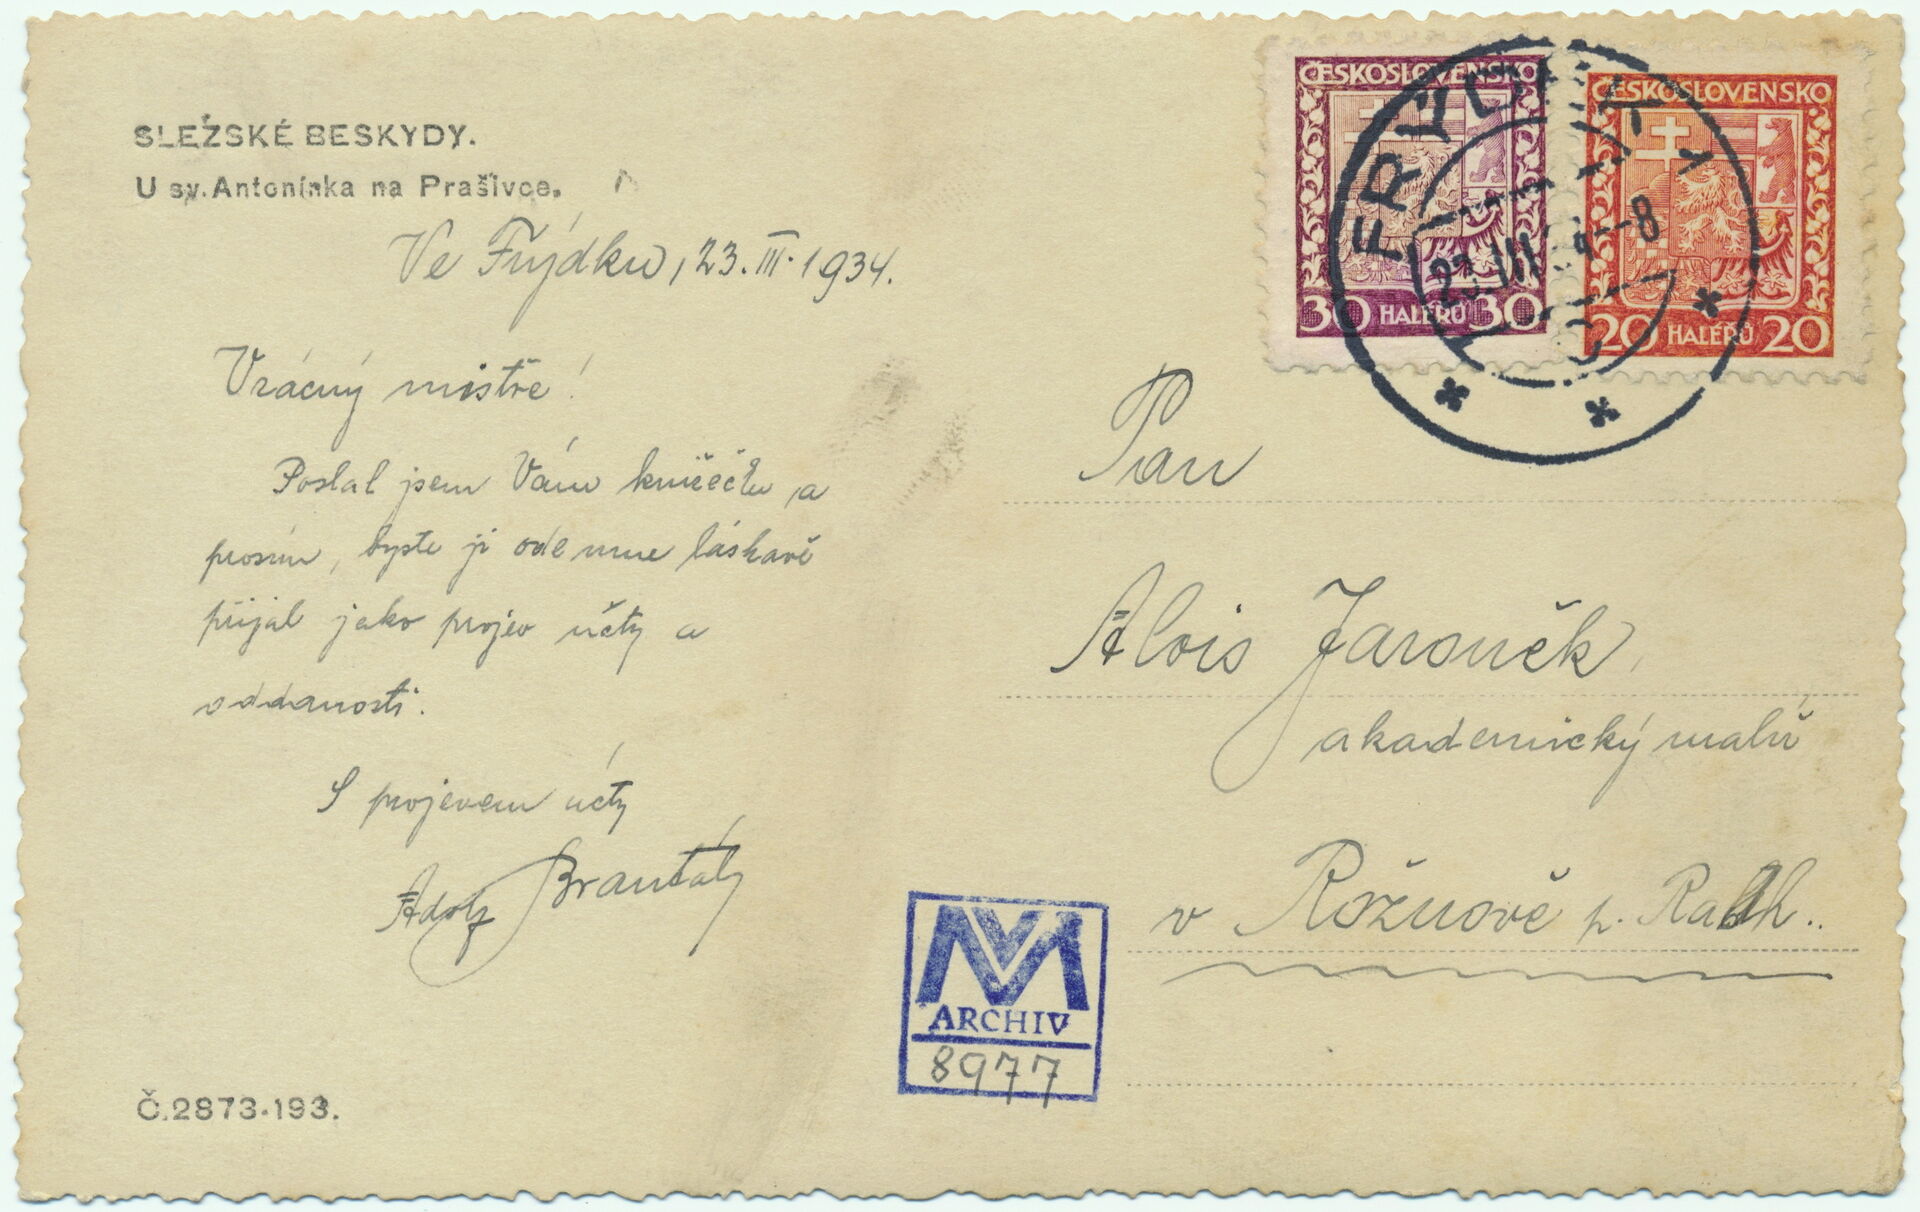 SLEZSKÉ BESKYDY.
U sv. Antonínka na Prašivce.
Ve Frýdku, 23. III. 1934.
Vzácný mistře!
Poslal jsem Vám knížečku a
prosím, byste ji ode mne láskavě
přijal jako projev úcty a
oddanosti.
S projevem úcty
Adolf Brantály
Č.2873-193.
ČESKOSLOVENSKO
30 HALÉŘŮ 30
ČESKOSLOVENSKO
20 HALÉŘŮ 20
FRÝDEK 1
23.III 34-8
Pan
Alois Jaroněk,
akademický malíř
v Rožnově p. Radh..
VM
ARCHIV
8977